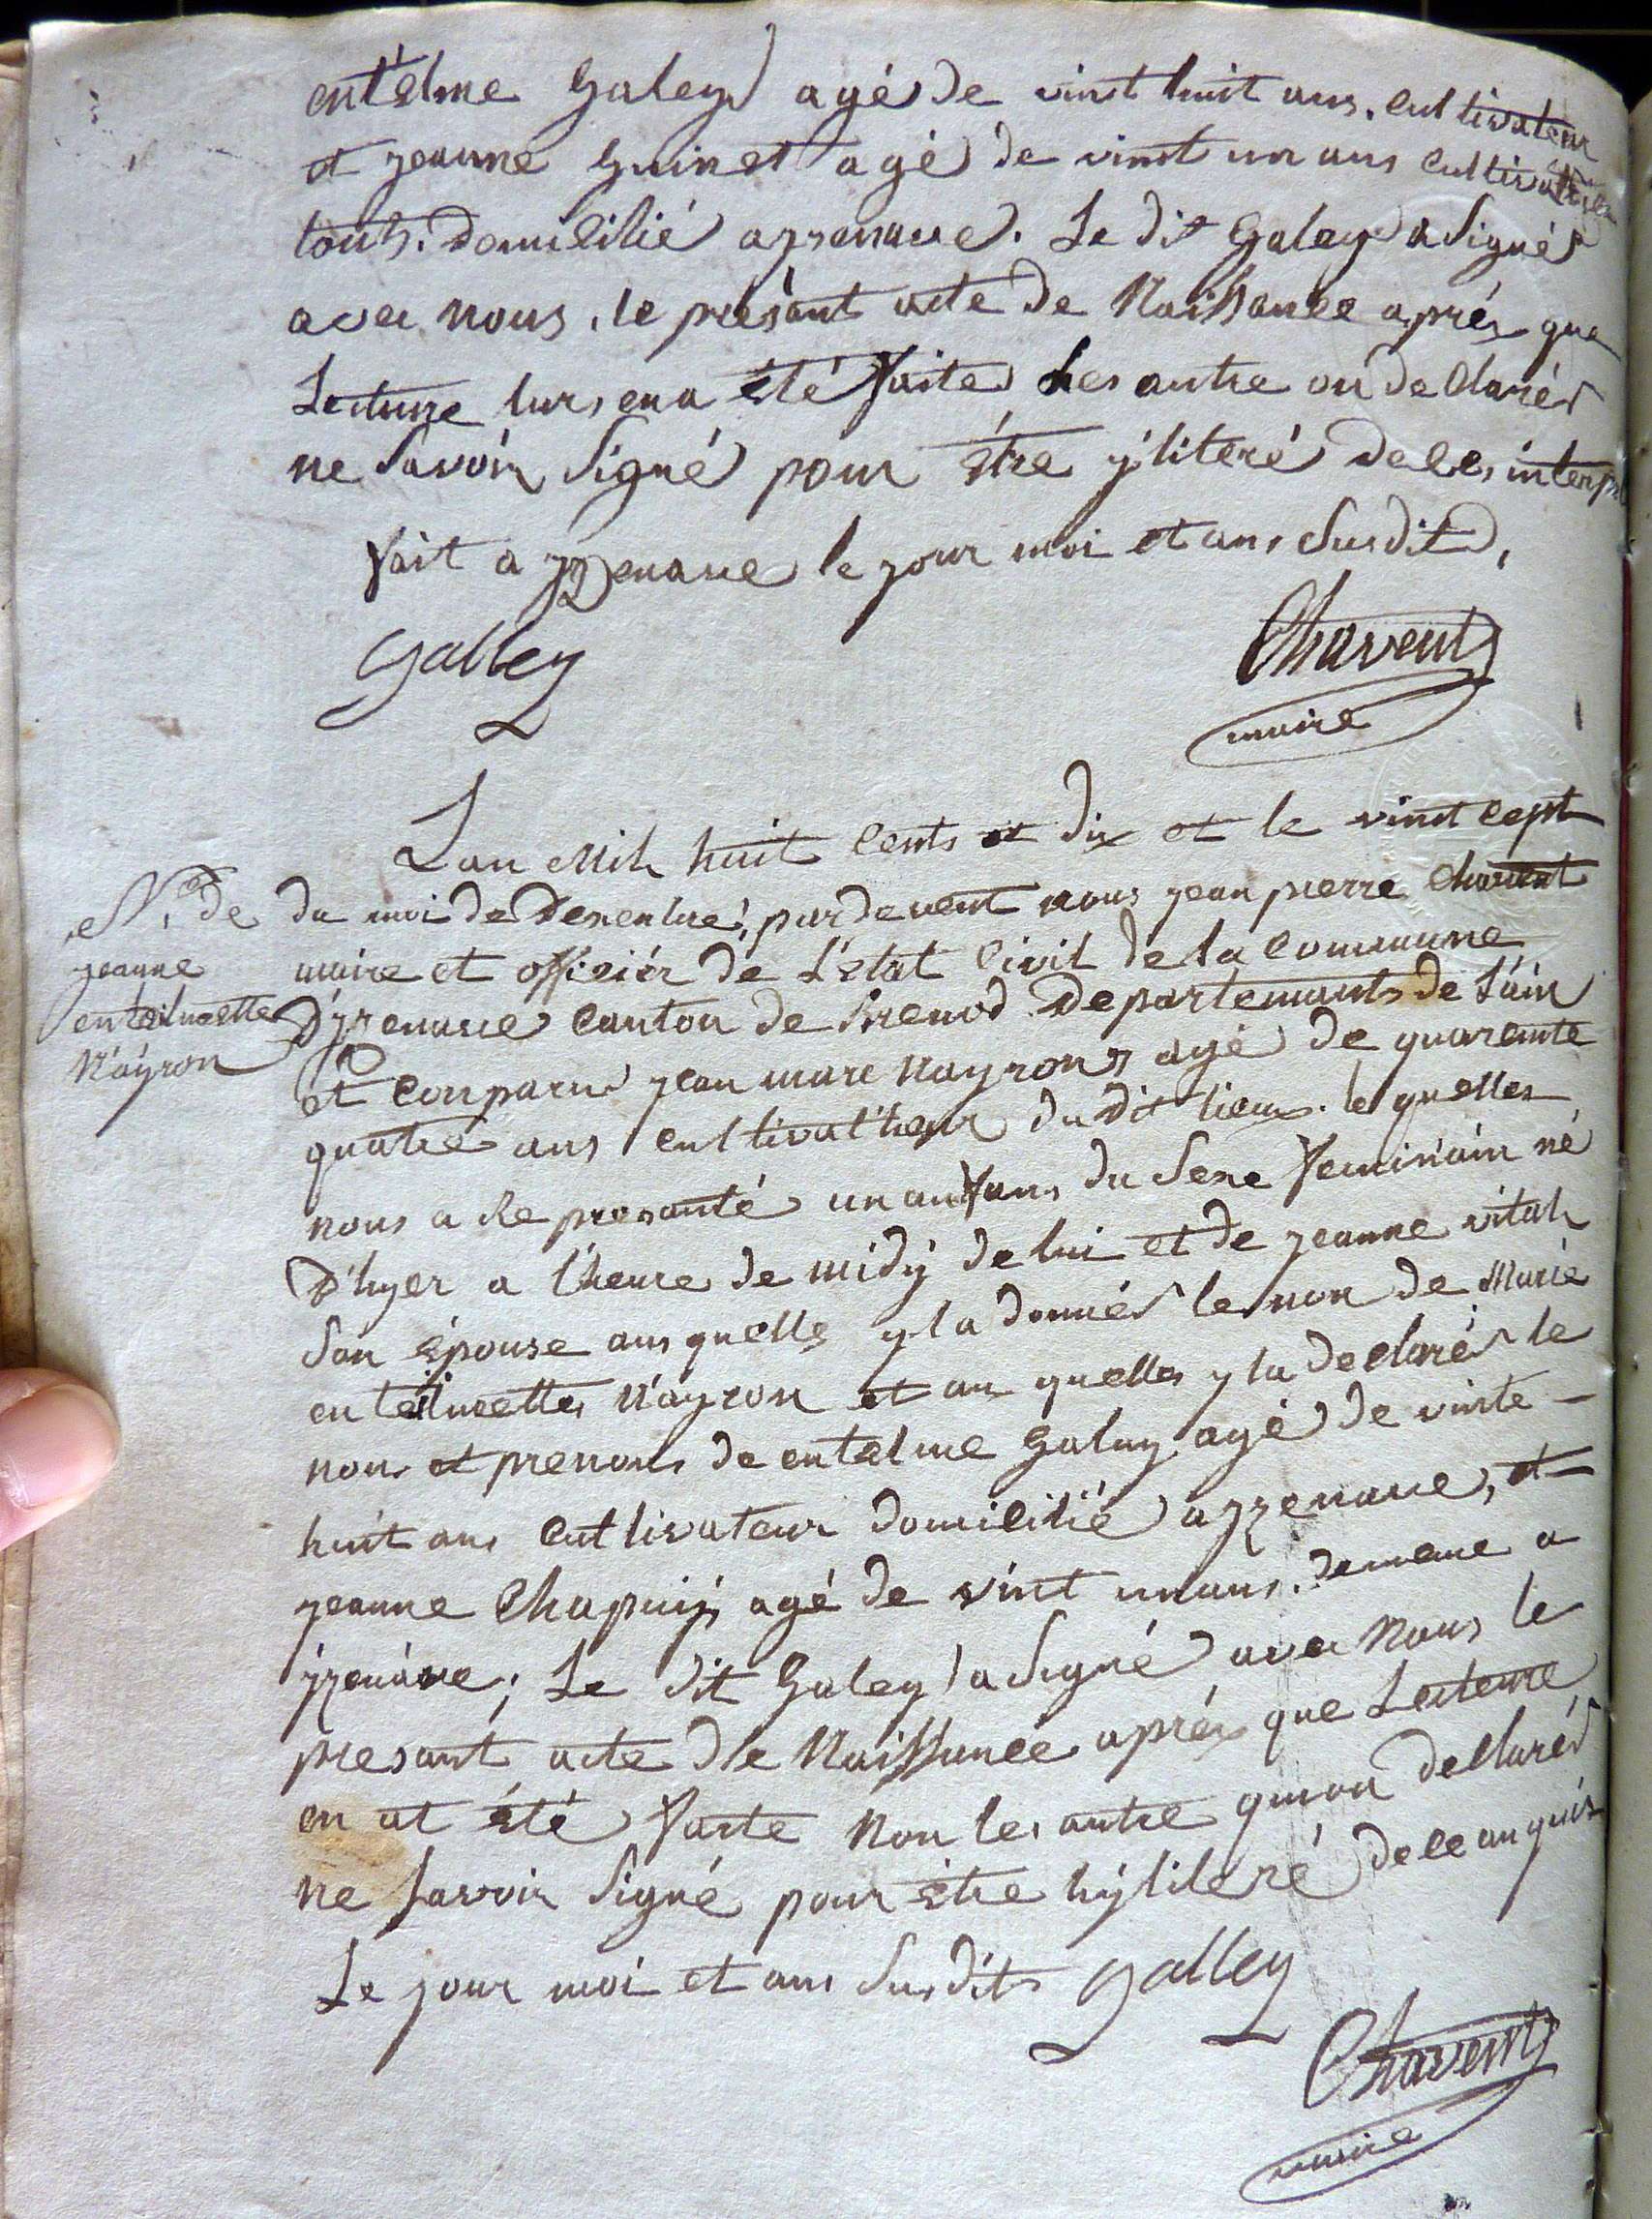 entelme Galey agé de vint huit ans. cultivateur
et jeanne Guinet agé de vint un ans cultivatrice
touts. domicilié a yzenave. Le dit Galey a signér
avec nous, le présant acte de Naissance aprés que
Lecture lurs en a été faite Les autre on declarér
ne savoir signé pour étre yliteré de ces interp
fait a yzenave le jour moi et ans susdit,
Galley
Chavent
maire
L'an Mil huit cents et dix et le vint cept
N. de
jeanne
enteilmette
Nayron
du moi de Desenbre, par devent nous jean pierre Chavent
maire et offisiér de L'état Civil de la Commune
D'yzenave canton de Brenod departemants de L'ain
et conparu jean marc Nayron agé de quarente
quatre ans cultivatheur du dit lieu. le quelles
nous a Represanté un anfans du sexe feminain né
d'hyer a l'heure de midy de lui et de jeanne vitah
son épouse aus quelle y la donnér le non de Marie
enteilmette Nayron et au quelles y la declarér le
non et prenons de entelme Galey agé de vinte -
huit ans cultivateur domicilié a yzenave, et
jeanne Chapuis agé de vint un ans. dememe a
yzenave; Le dit Galey a signé avec Nous le
presant acte de Naissance aprés que Lecteure
en at été faite Non les autre qui on dellarér
ne savoir signé pour étre hyliteré de ce anquis
Le jour moi et ans susdits
Galley
Chavent
maire